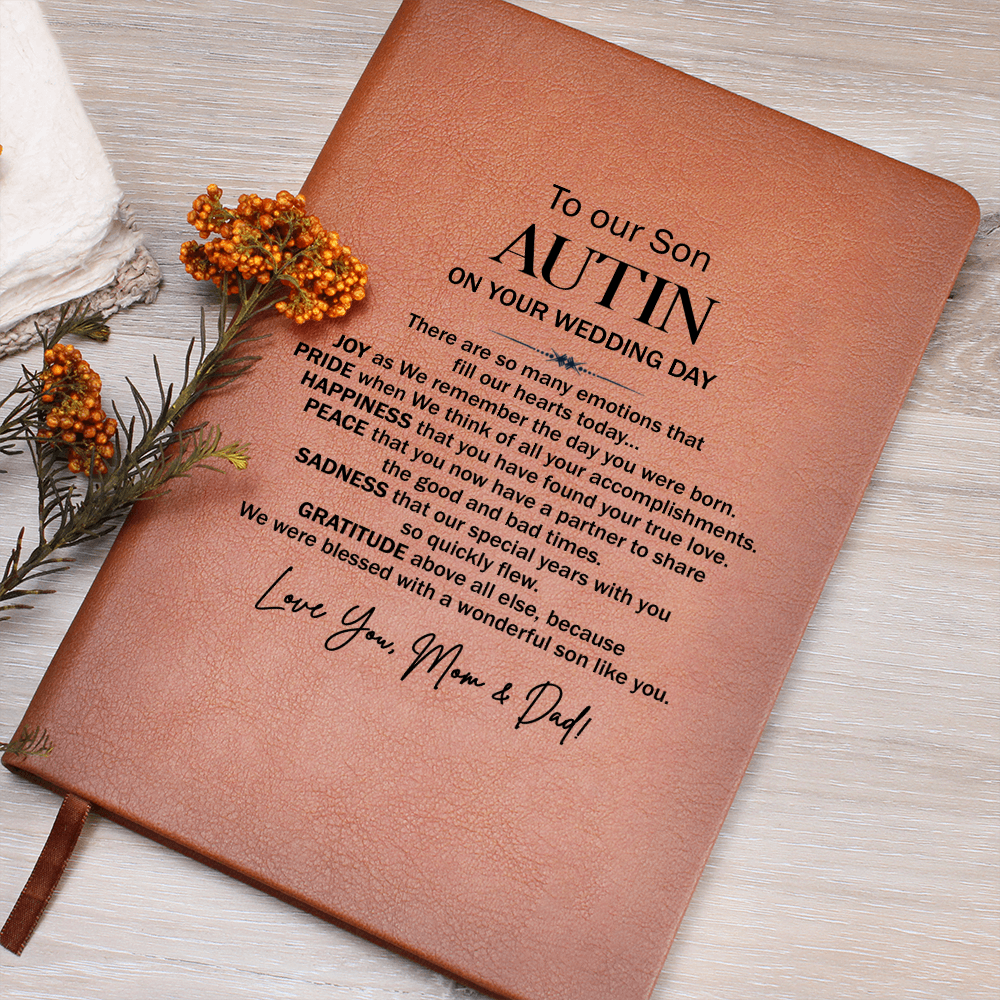 To our Son
AUTIN
ON YOUR WEDDING DAY
There are so many emotions that
fill our hearts today...
JOY as We remember the day you were born.
PRIDE when We think of all your accomplishments.
HAPPINESS that you have found your true love.
PEACE that you now have a partner to share
the good and bad times.
SADNESS that our special years with you
so quickly flew.
GRATITUDE above all else, because
We were blessed with a wonderful son like you.
Love You, Mom & Dad!